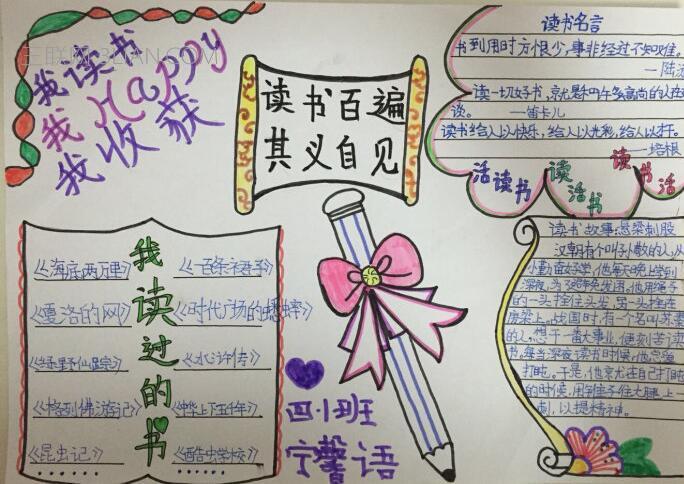 三联网 3LIAN.COM
我读书
我Happy
我收获
读书百遍
其义自见
读书名言
书到用时方恨少,事非经过不知难。
—陆
读一切好书,就是和许多高尚的人在
谈。 —笛卡儿
读书给人以快乐,给人以光彩,给人以才干。
—培根
活读书
读活书
读书活
我读过的书
《海底两万里》
《一百条裙子》
《夏洛的网》
《时代广场的蟋蟀》
《绿野仙踪》
《水浒传》
《格列佛游记》
《中华上下五千年》
《昆虫记》
《酷虫学校》
四小班
宁馨语
读书故事:悬梁刺股
汉朝有个叫孙敬的人,从
小勤奋好学,他每天晚上学到
深夜,为了避免发困,他用绳子
的一头拴住头发,另一头拴在
房梁上。战国时,有个名叫苏秦
的人,想干一番大事业,便刻苦读
书,每当深夜读书时候,他总爱
打盹。于是,他就在自己打盹
的时候,用锥子往大腿上一
刺,以提精神。